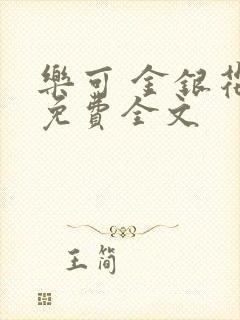 樂可 金銀花
免費全文
王简